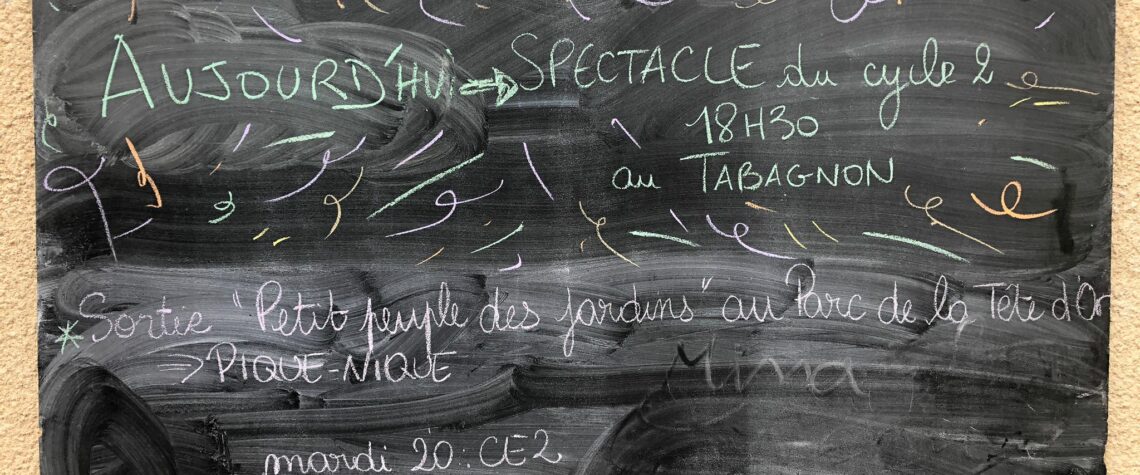 AUJOURD'HUI → SPECTACLE du cycle 2
18H30
au TABAGNON
* Sortie "Petit peuple des jardins" au Parc de la Tête d'Or
⇒ PIQUE-NIQUE
Mina
mardi 20 : CE2